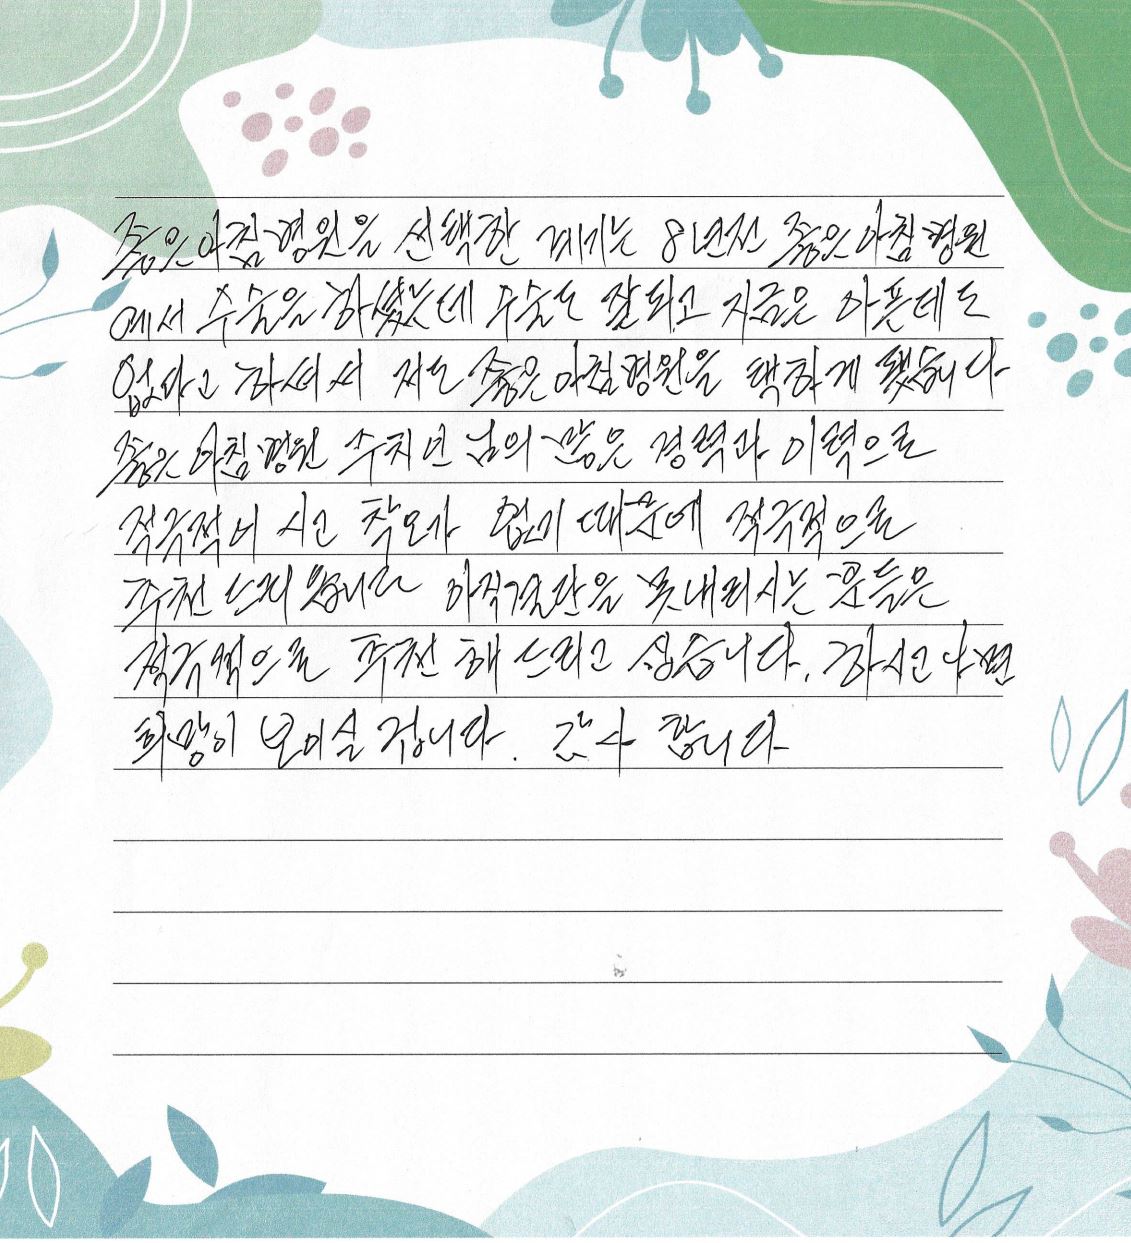 좋은아침병원을 선택한 계기는 8년전 좋은아침병원
에서 수술을 하셨는데 수술도 잘되고 지금은 아픈데도
없다고 하셔서 저도 좋은아침병원을 택하게 됐습니다
좋은아침병원 님의 많은 경력과 이력으로
적극적이 시고 착오가 없기 때문에 적극적으로
추천 드리 아직결단을 못내리시는 분들은
적극적으로 추천 해 드리고 싶습니다. 하시고나면
희망이 보이실 겁니다. 감사 합니다